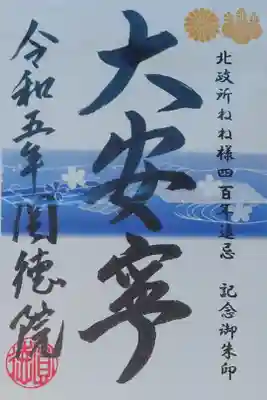 北政所ねね様四百年遠忌　記念御朱印
大安寧
令和五年圓徳院
圓徳